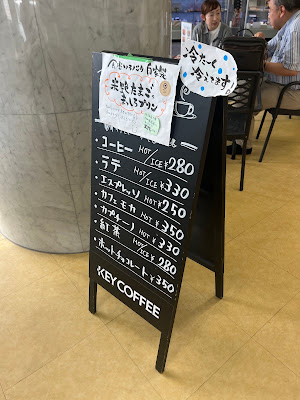 自家製
米粉たまご
まんまるプリン
冷たく
冷えてます
・コーヒー HOT/ICE ¥280
・ラテ HOT/ICE ¥330
・エスプレッソ HOT ¥250
・カフェモカ HOT ¥350
・カプチーノ HOT ¥330
・紅茶 HOT/ICE ¥280
・ホットチョコレート ¥350
KEY COFFEE